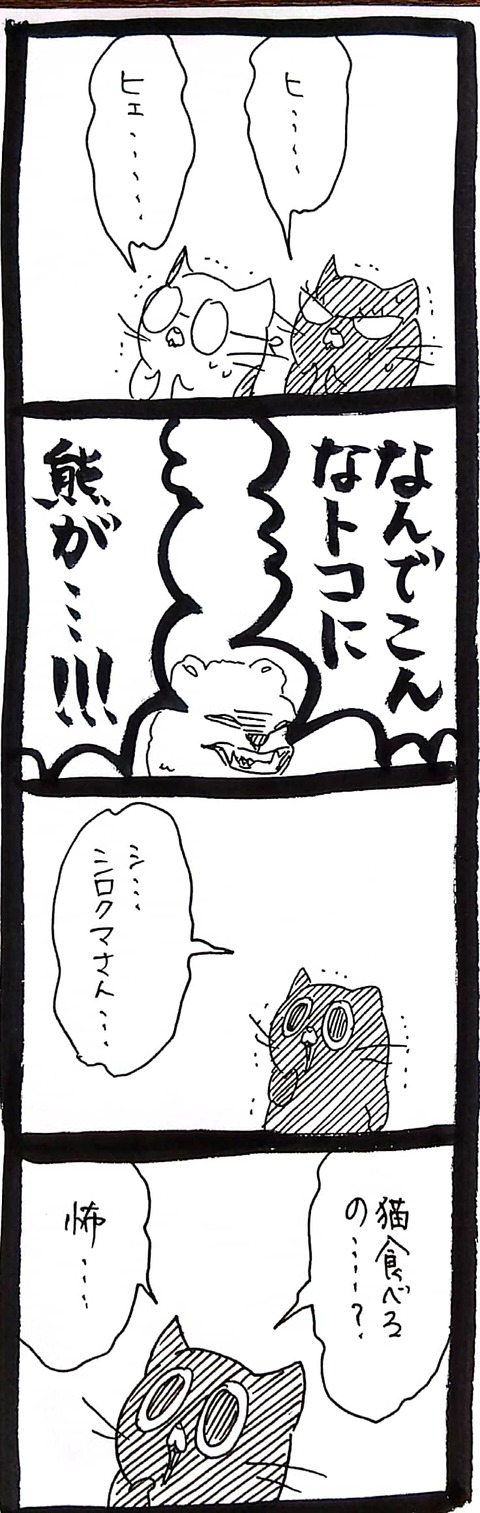 ヒ……
ヒェ……
なんでこん
なトコに
熊が…!!!
シ…
シロクマさん…
猫食べる
の……?
怖……